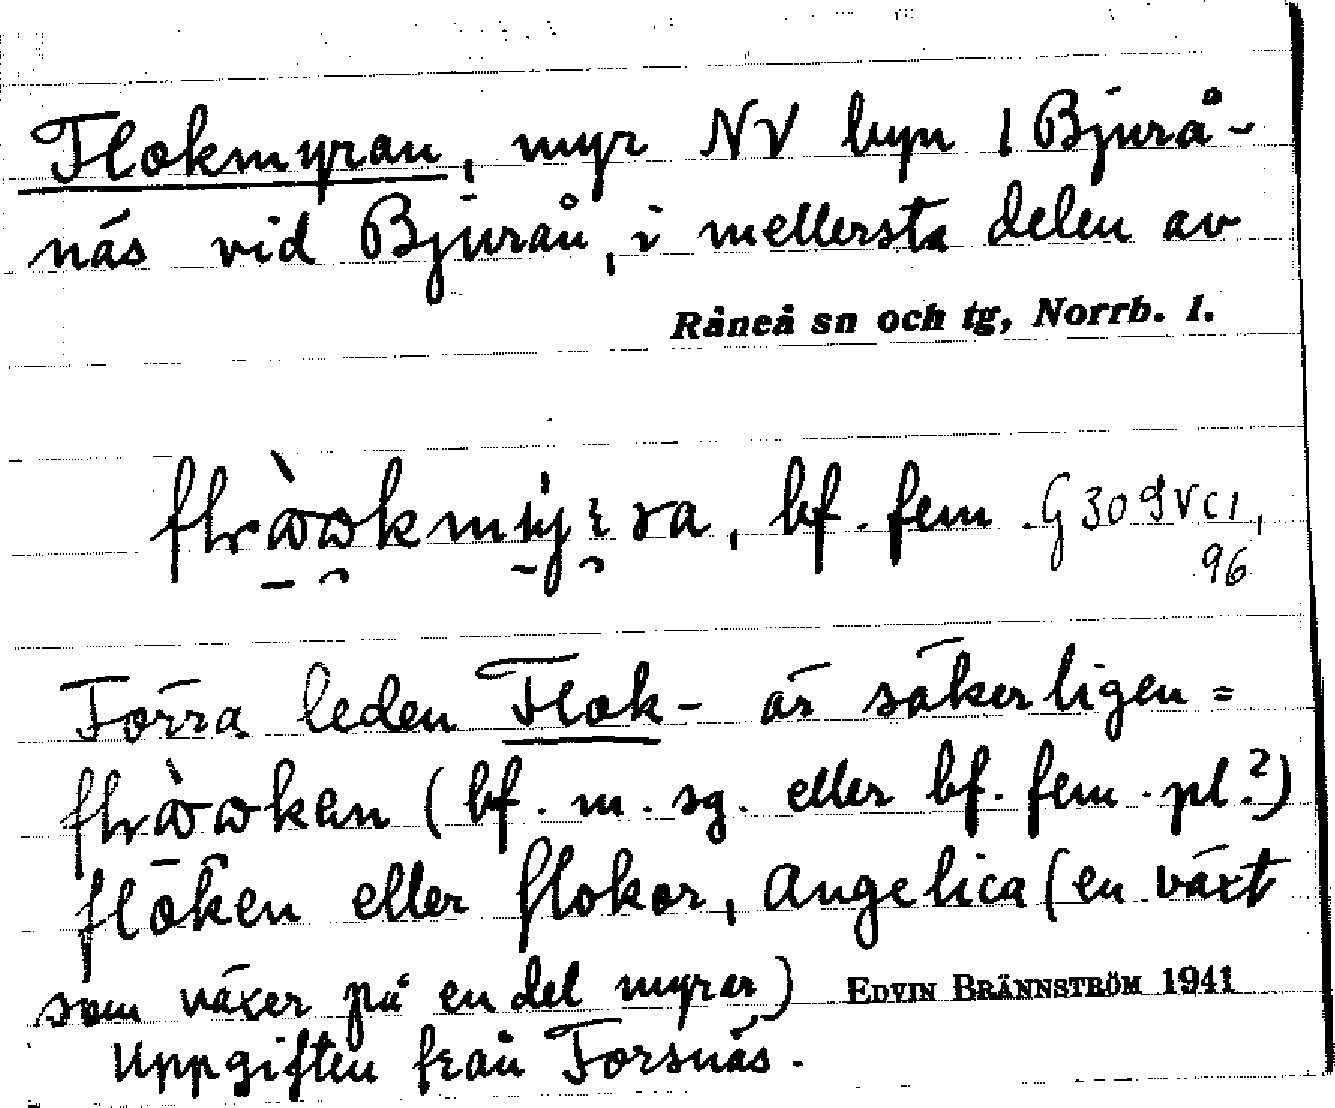 Flokmyran, myr NV byn 1 Bjurå-
näs vid Bjurån, i mellersta delen av
Råneå sn och tg, Norrb. l.
bf. fem G 309 V C 1,
96
Förra leden Flok- är säkerligen =
(bf. m. sg. eller bf. fem. pl.?)
flöken eller flokor, Angelica (en växt
som växer på en del myrar) EDVIN BRÄNNSTRÖM 1941
Uppgiften från Forsnäs.